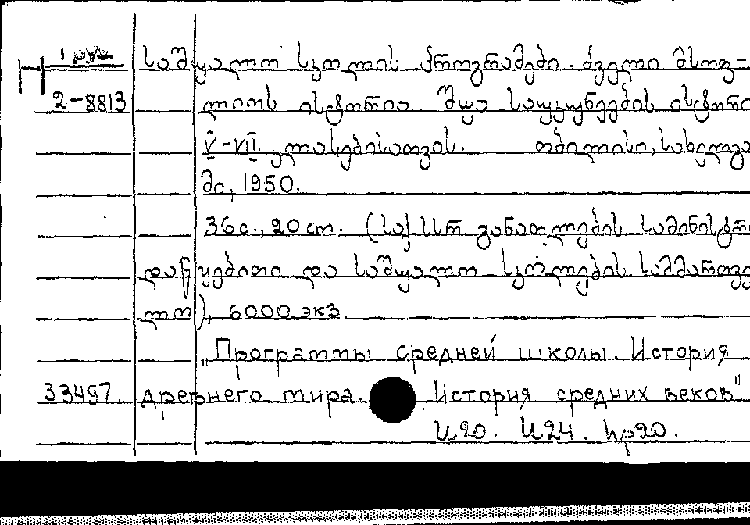 საშუალო სკოლის პროგრამები. ძველი მსოფ-
2-8813 ლიოს ისტორია. შუა საუკუნეების ისტორია
V-VII კლასებისათვის. თბილისი, სახელგა
მც, 1950.
36 с., 20 cm. (საქ. სსრ განათლების სამინისტრო
დაწყებითი და საშუალო სკოლების სამმართვე
ლო), 6000 экз.
"Программы средней школы. История
33497 древнего мира. История средних веков"